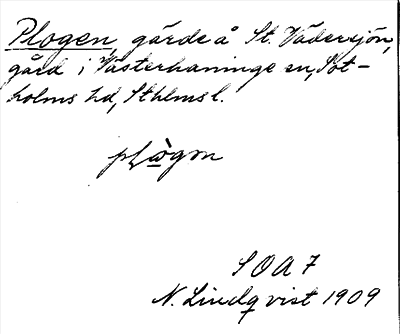 Plogen, gärde å St. Vädersjön,
gård i Västerhaninge sn, Sot-
holms hd, Sthlms l.
plògon
SOA 7
N. Lindqvist 1909